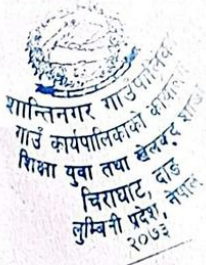 शान्तिनगर गाउँपालिका
गाउँ कार्यपालिकाको कार्यालय
शिक्षा युवा तथा खेलकुद शाखा
चिराघाट, दाङ
लुम्बिनी प्रदेश, नेपाल
२०७३